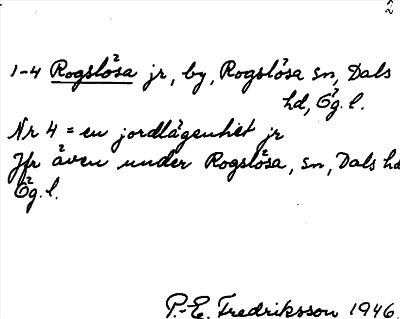 1-4 Rogslösa jr, by, Rogslösa sn, Dals
hd, Ög. l.
Nr 4 = en jordlägenhet jr
Jfr även under Rogslösa, sn, Dals hd
Ög. l.
P.-E. Fredriksson 1946.